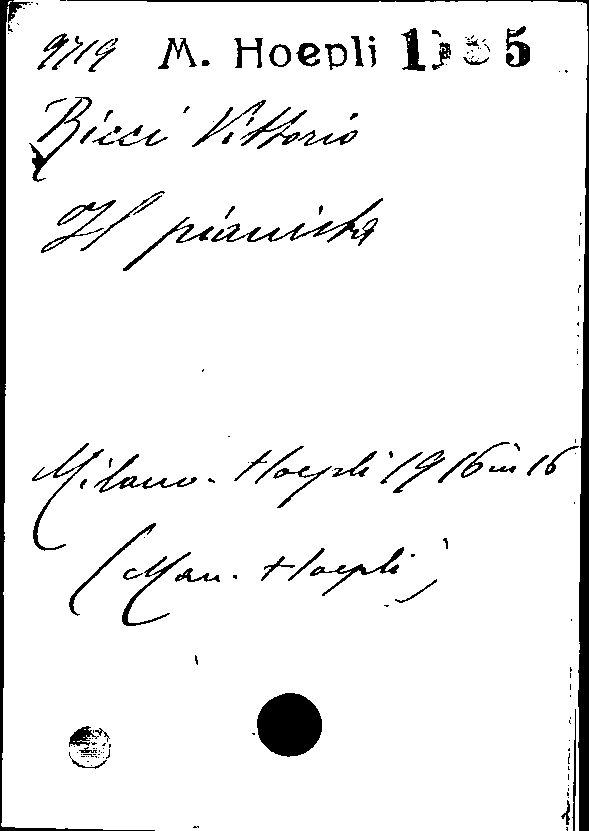 9719 M. Hoepli
Ricci Vittorio
Il pianista
Milano. Hoepli 1916 in 16
(Man. Hoepli)